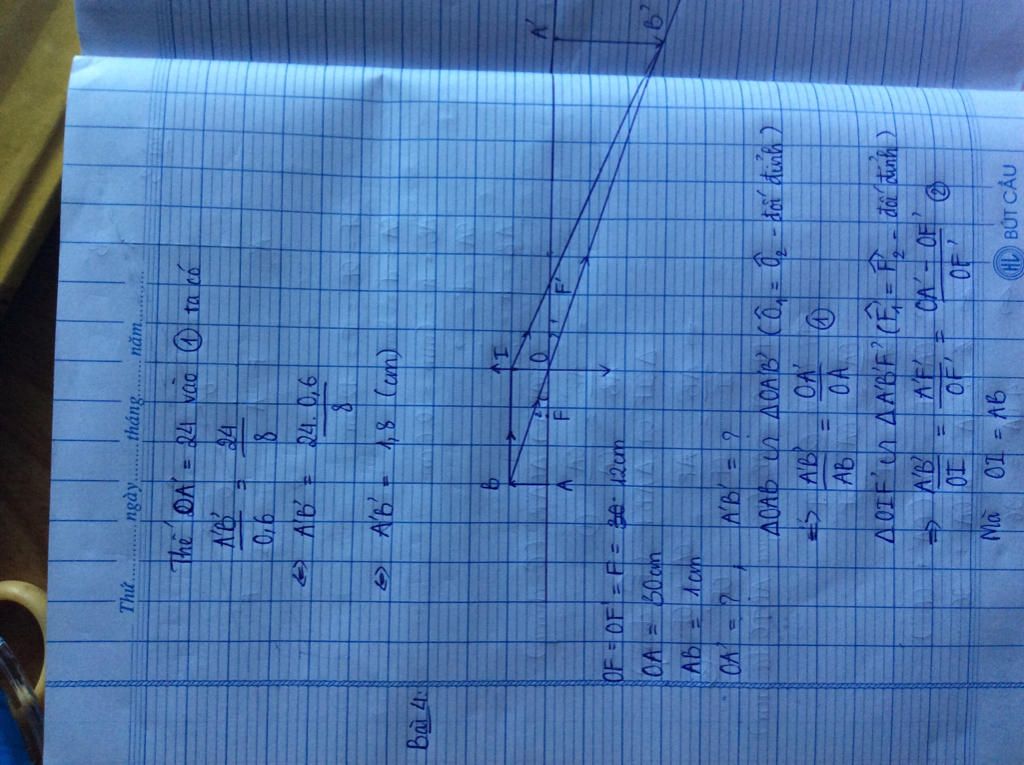 Thứ ............ ngày ............ tháng ............ năm ............
Thế OA' = 24 vào ① ta có
A'B'/0,6 = 24/8
⇔ A'B' = 24.0,6/8
⇔ A'B' = 1,8 (cm)
Bài 4:
B I
A F O F' A'
B'
OF = OF' = F = 12cm
OA = 30cm
AB = 1cm
OA' = ? , A'B' = ?
ΔOAB ∽ ΔOA'B' (Ô₁ = Ô₂ - đối đỉnh)
⇒ A'B'/AB = OA'/OA ①
ΔOIF' ∽ ΔA'B'F' (F̂'₁ = F̂'₂ - đối đỉnh)
⇒ A'B'/OI = A'F'/OF' = OA' - OF'/OF' ②
Mà OI = AB
HL BÚT CÂU